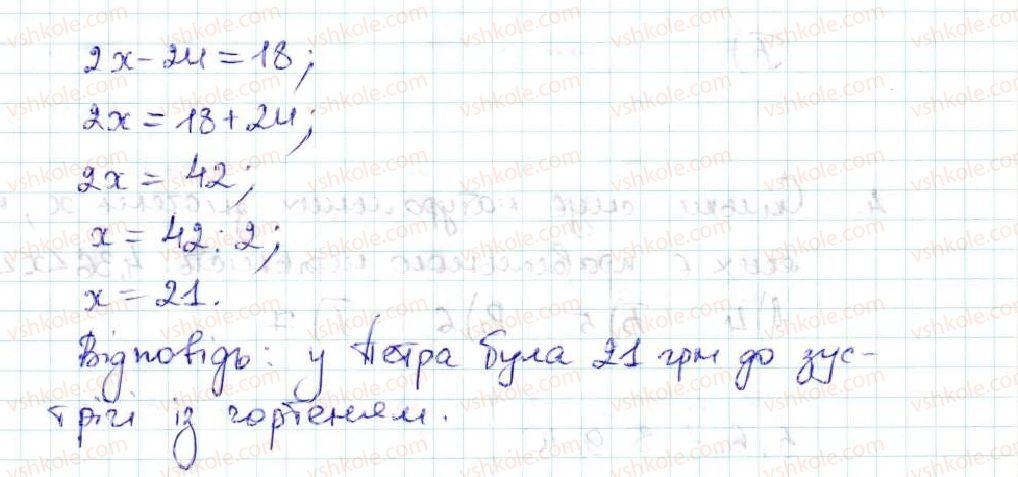 2x - 24 = 18;
2x = 18 + 24;
2x = 42;
x = 42 : 2;
x = 21.
Відповідь: у Петра була 21 грн до зус-
трічі із чортеням.